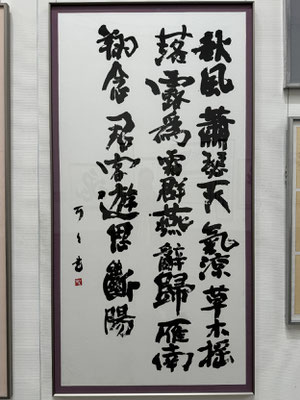 秋風蕭瑟天氣涼草木搖
落露爲霜群燕辭歸雁南
翔念君客遊思斷腸